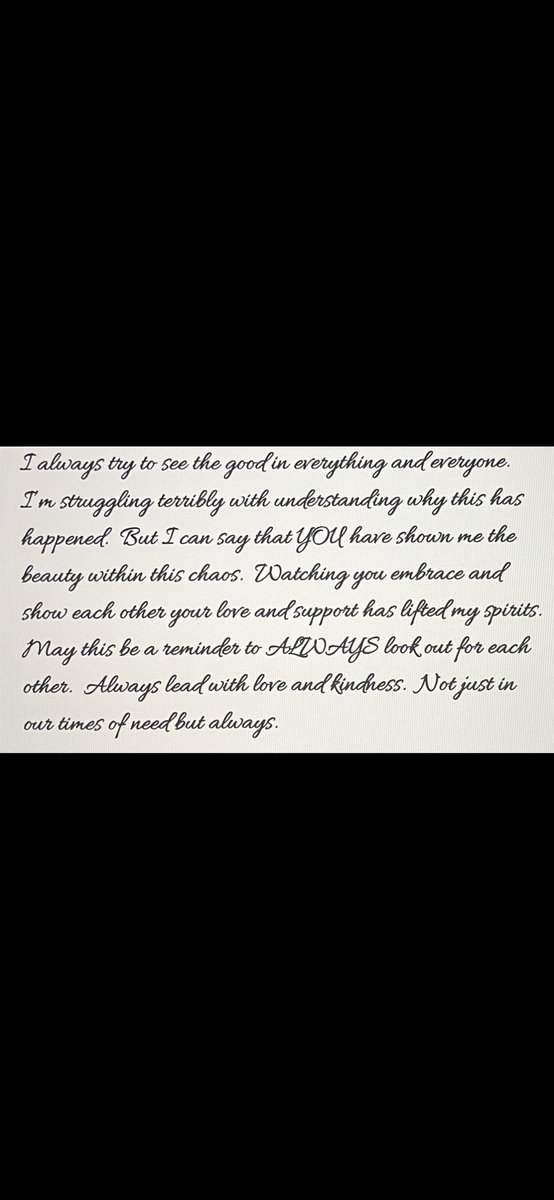 I always try to see the good in everything and everyone.
I'm struggling terribly with understanding why this has
happened. But I can say that YOU have shown me the
beauty within this chaos. Watching you embrace and
show each other your love and support has lifted my spirits.
May this be a reminder to ALWAYS look out for each
other. Always lead with love and kindness. Not just in
our times of need but always.